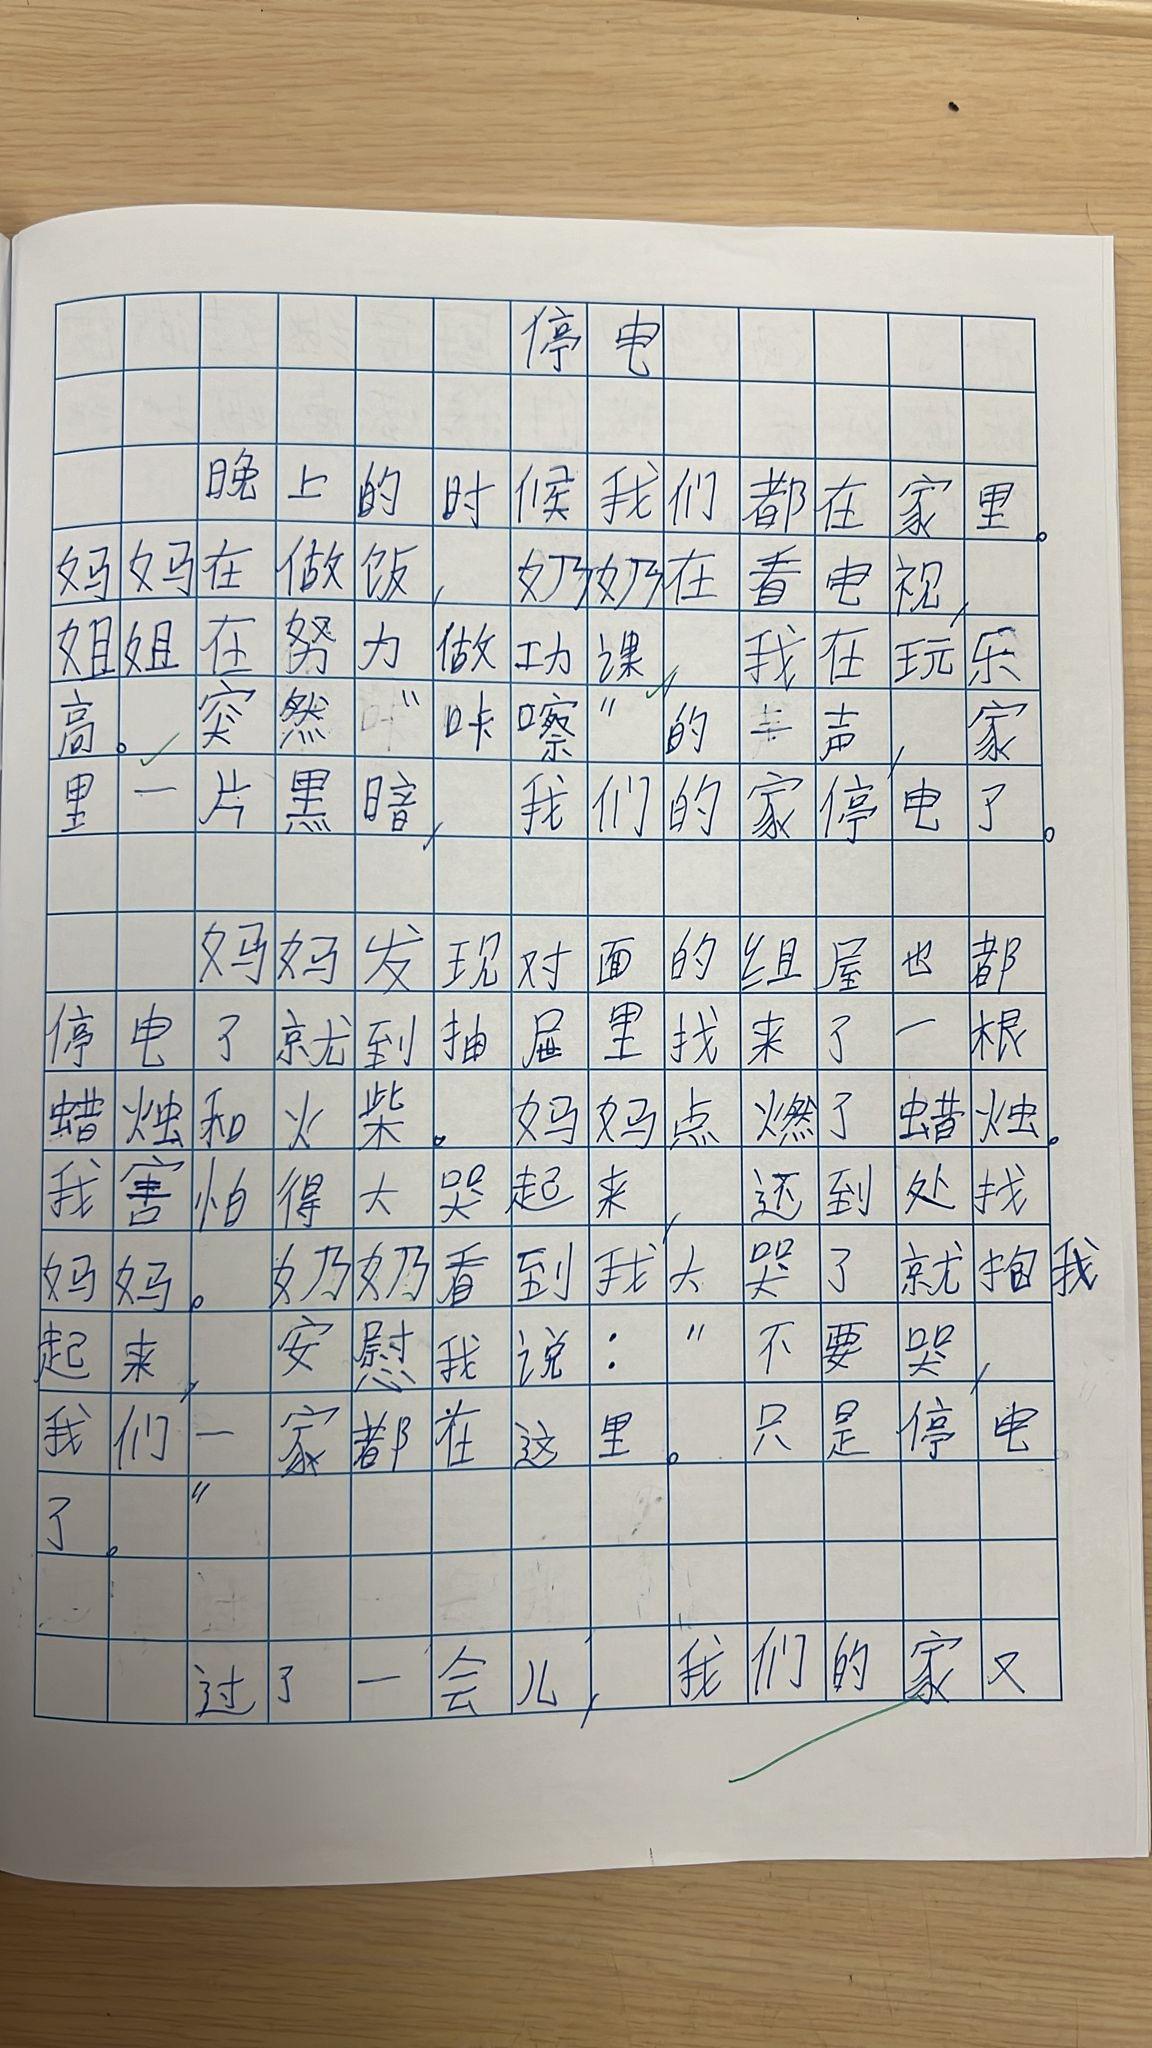 停电
晚上的时候我们都在家里。
妈妈在做饭，奶奶在看电视，
姐姐在努力做功课，我在玩乐
高。突然“咔嚓”的一声，家
里一片黑暗，我们的家停电了。
妈妈发现对面的组屋也都
停电了就到抽屉里找来了一根
蜡烛和火柴。妈妈点燃了蜡烛。
我害怕得大哭起来，还到处找
妈妈。奶奶看到我大哭了就抱我
起来，安慰我说：“不要哭，
我们一家都在这里。只是停电
了。”
过了一会儿，我们的家又